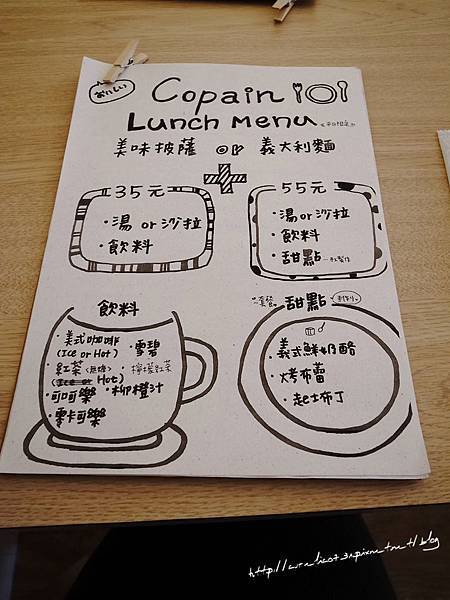 おいしい
Copain
Lunch Menu 《平日限定》
美味披薩 or 義大利麵
35元
・湯 or 沙拉
・飲料
55元
・湯 or 沙拉
・飲料
・甜點
飲料
・美式咖啡
(Ice or Hot)
・紅茶〈無糖〉
(Ice or Hot)
・可可樂
・零卡可樂
・雪碧
・檸檬紅茶
・柳橙汁
套餐 甜點 手作り
・義式鮮奶酪
・烤布蕾
・起士布丁